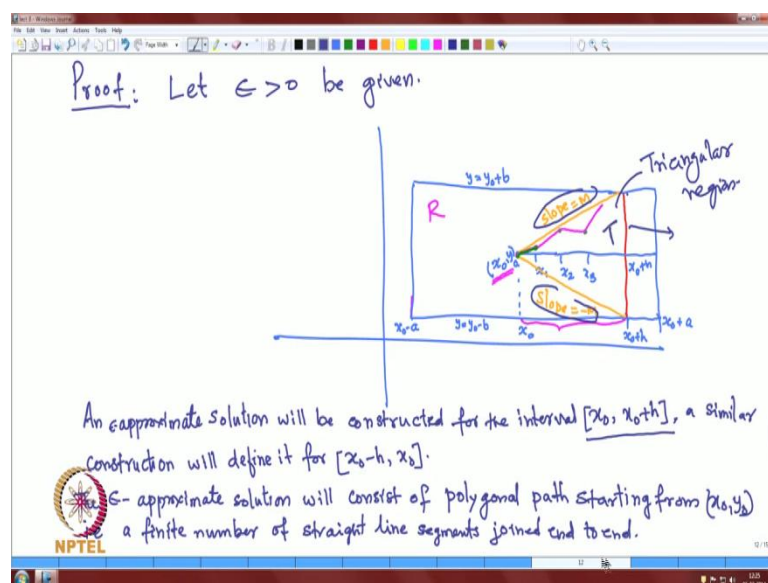 File Edit View Insert Actions Tools Help
Page Width
Proof: Let ε>0 be given.
y=y₀+b
Triangular
region
R
slope=M
T
(x₀,y₀)
x₁ x₂ x₃ x₀+h
Slope=-
x₀-a y=y₀-b x₀ x₀+h x₀+a
An ε-approximate solution will be constructed for the interval [x₀, x₀+h], a similar
construction will define it for [x₀-h, x₀].
ε- approximate solution will consist of polygonal path starting from (x₀,y₀)
a finite number of straight line segments joined end to end.
NPTEL
12
12/15
12:25